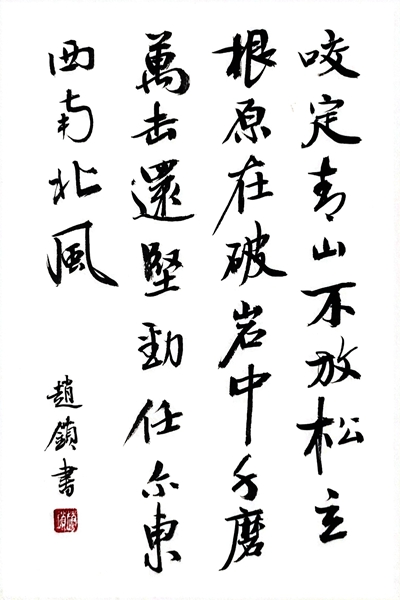 咬定青山不放松立
根原在破岩中千磨
萬击還堅勁任尔東
西南北風
趙鎖書